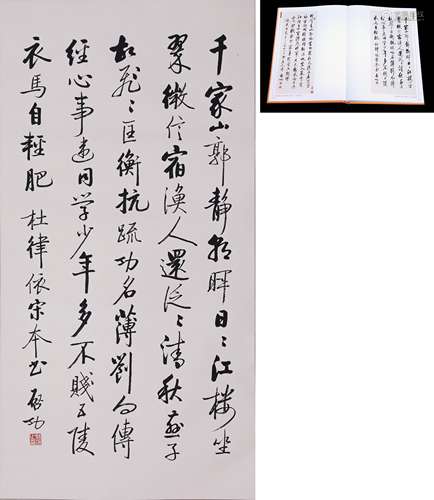 千家山郭靜朝暉日〻江樓坐
翠微信宿漁人還泛〻清秋燕子
故飛〻匡衡抗疏功名薄劉向傳
經心事違同學少年多不賤五陵
衣馬自輕肥 杜律依宋本書 啟功